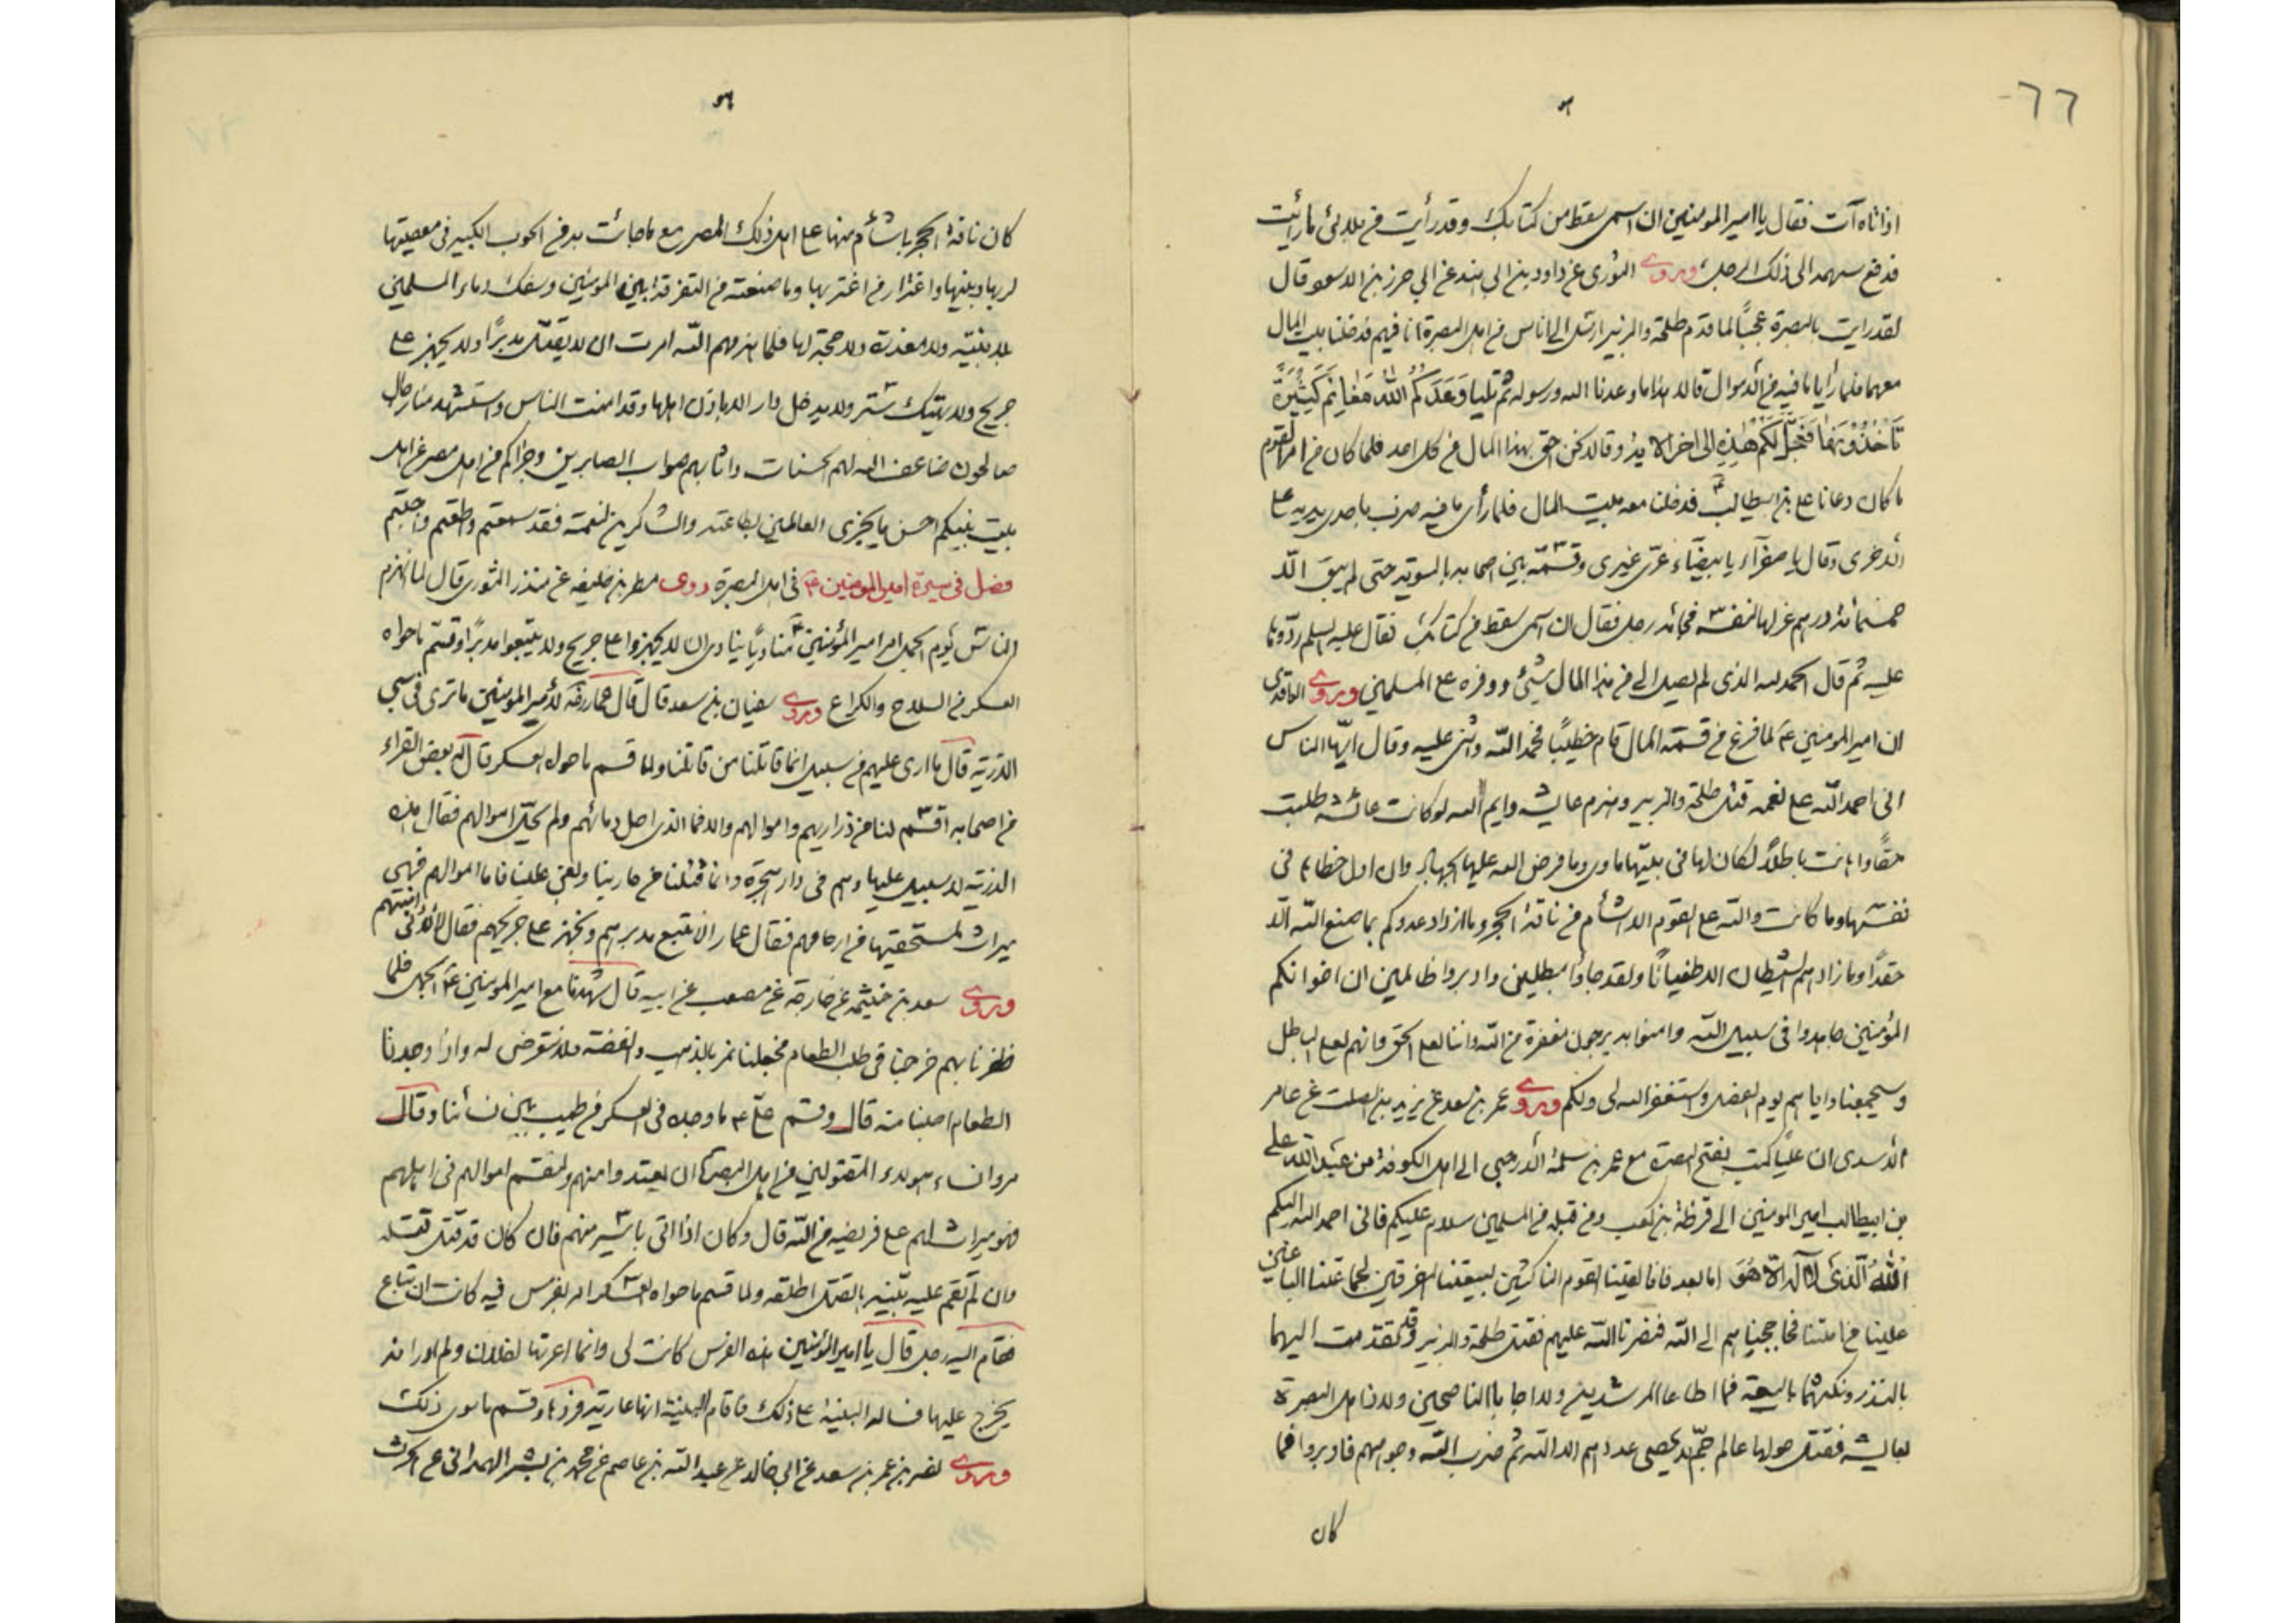 ٦٦
اذ اتاه آت فقال يا امير المومنين ان اسمى سقط من كتابك وقد رأيت من بلائى ما رأيت
فدفع سهمه الى ذلك الرجل وروى الثورى عن داود بن ابى هند عن ابى حرز بن الاسود قال
لقد رايت بالبصرة عجبًا لما قدم طلحة والزبير ارسل الى اناس من اهل البصرة انا فيهم فدخلنا بيت المال
معهما فلما رأيا ما فيه من الاموال قالا هذا ما وعدنا الله ورسوله ثم تليا وَعَدَكُمُ اللهُ مَغَانِمَ كَثِيرَةً
تَأخُذُونَهَا فَعَجَّلَ لَكُمْ هٰذِهِ الى اخر الاية وقالا نحن احق بهذا المال من كل احد فلما كان من امر القوم
ما كان دعانا على بن ابيطالب ع فدخلنا معه بيت المال فلما رأى ما فيه ضرب باحدى يديه على
الاخرى وقال يا صفرآء يا بيضآء غرّى غيرى وقسّمه بين اصحابه بالسوية حتى لم يبق الّا
خمسمائة درهم عزلها لنفسه فجائه رجل فقال ان اسمى سقط من كتابك فقال عليه السلم ردّوها
عليه ثم قال الحمد لله الذى لم يصل الى من هذا المال شئ ووفره على المسلمين وروى الواقدى
ان امير المومنين ع لما فرغ من قسمة المال قام خطيبًا فحمد اللّه واثنى عليه وقال ايّها الناس
انى احمد اللّه على نعمه قتل طلحة والزبير وهزم عايشه وايم الله لو كانت عائشه طلبت
حقًّا واهانت باطلاً لكان لها فى بيتها ماوى وما فرض الله عليها الجهاد وان اول خطائها فى
نفسها وما كانت واللّه على القوم الا شأم من ناقة الحجر وما ازداد عدوكم بما صنع اللّه الّا
حقدًا وما زادهم الشيطان الا طغيانًا ولقد جاؤا مبطلين وادبروا ظالمين ان اخوانكم
المؤمنين جاهدوا فى سبيل اللّه وامنوا به يرجون مغفرة من اللّه واننا لعلى الحق وانهم لعلى الباطل
وسيجمعنا واياهم يوم الفصل واستغفر الله لى ولكم وروى عمر بن سعد عن يزيد بن الصلت عن عامر
الاسدى ان عليًا كتب بفتح البصرة مع عمر بن سلمة الارحبى الى اهل الكوفة من عبد اللّه على
بن ابيطالب امير المومنين الى قرظة بن كعب ومن قبله من المسلمين سلام عليكم فانى احمد اليكم
اللهُ الَّذى لا اله الّا هُوَ اما بعد فانا لقينا القوم الناكثين لبيعتنا المفرقين لجماعتنا الباغين
علينا من امتنا فحاججناهم الى اللّه فنصرنا اللّه عليهم فقتل طلحة والزبير وقد تقدمت اليهما
بالنذر ونكبتهما بالبيعة فما اطاعا المرشدين ولا اجابا الناصحين ولاذ اهل البصرة
بعايشه فقتل حولها عالم جمّ لا يحصى عددهم الا اللّه ثم ضرب اللّه وجوههم فادبروا فما
كان
كان ناقة الحجر باشأم منها على اهل ذلك المصر مع ما جائت به من الحوب الكبير فى معصيتها
لربها ونبيها واغترار من اغتر بها وما صنعته من التفرقة بين المومنين وسفك دماء المسلمين
بلا بينة ولا معذرة ولا حجة لها فلما هزمهم اللّه امرت ان لا يقتل مدبرًا ولا يجهز على
جريح ولا يهتك ستر ولا يدخل دار الا باذن اهلها وقد امنت الناس واستشهد منا رجال
صالحون ضاعف الله لهم الحسنات واثابهم ثواب الصابرين وجزاكم من اهل مصر عن اهل
بيت نبيكم احسن ما يجزى العاملين بطاعته والشاكرين لنعمة فقد سمعتم واطعتم واجبتم
فصل فى سيرة امير المومنين ع فى اهل البصرة روى مطر بن خليفه عن منذر الثورى قال لما انهزم
الناس يوم الجمل امر امير المؤمنين ع مناديًا ينادى ان لا يجهزوا على جريح ولا يتبعوا مدبرًا وقسّم ما حواه
العسكر من السلاح والكراع وروى سفيان بن سعد قال قال عمار رضه لامير المومنين ما ترى فى سبى
الذرية قال ما ارى عليهم من سبيل انما قاتلنا من قاتلنا ولما قسم ما حواه العسكر قال له بعض القراء
من اصحابه اقسم لنا من ذراريهم واموالهم والا فما الذى احل دمائهم ولم يحلّ اموالهم فقال هذه
الذرية لا سبيل عليها وهم فى دار هجرة وانما قتلنا من حاربنا وبغى علينا فاما اموالهم فهى
ميراث لمستحقيها من ارحامهم فقال عمار الا نتبع مدبرهم ونجهز على جريحهم فقال لا لانى امنتهم
وروى سعد بن خيثمه عن خارجة عن مصعب عن ابيه قال شهدنا مع امير المومنين ع الجمل فلما
ظفرنا بهم خرجنا فى طلب الطعام فجعلنا نمر بالذهب والفضه فلا نتعرض له واذا وجدنا
الطعام اصبنا منه قال وقسم علىّ ع ما وجده فى العسكر من طيب بين نسائنا وقال
مروا نساء هولاء المقتولين من اهل البصرة ان يعتددوا منهم ولنقسم اموالهم فى اهلهم
فهو ميراث لهم على فريضه من اللّه قال وكان اذا اتى باسير منهم فان كان قد قتل قتله
وان لم تقم عليه بيّنه بالقتل اطلقه ولما قسم ما حواه العسكر امر بفرس فيه كانت ان تباع
فقام اليه رجل قال يا امير المؤمنين هذه الفرس كانت لى وانما اعرتها لفلان ولم ادر انه
يخرج عليها فساله البينة على ذلك فاقام البينة انها عارية فردها وقسم ما سوى ذلك
وروى نصر بن عمر بن سعد عن ابى خالد عن عبد اللّه بن عاصم عن محمد بن بشير الهمدانى عن الحرث